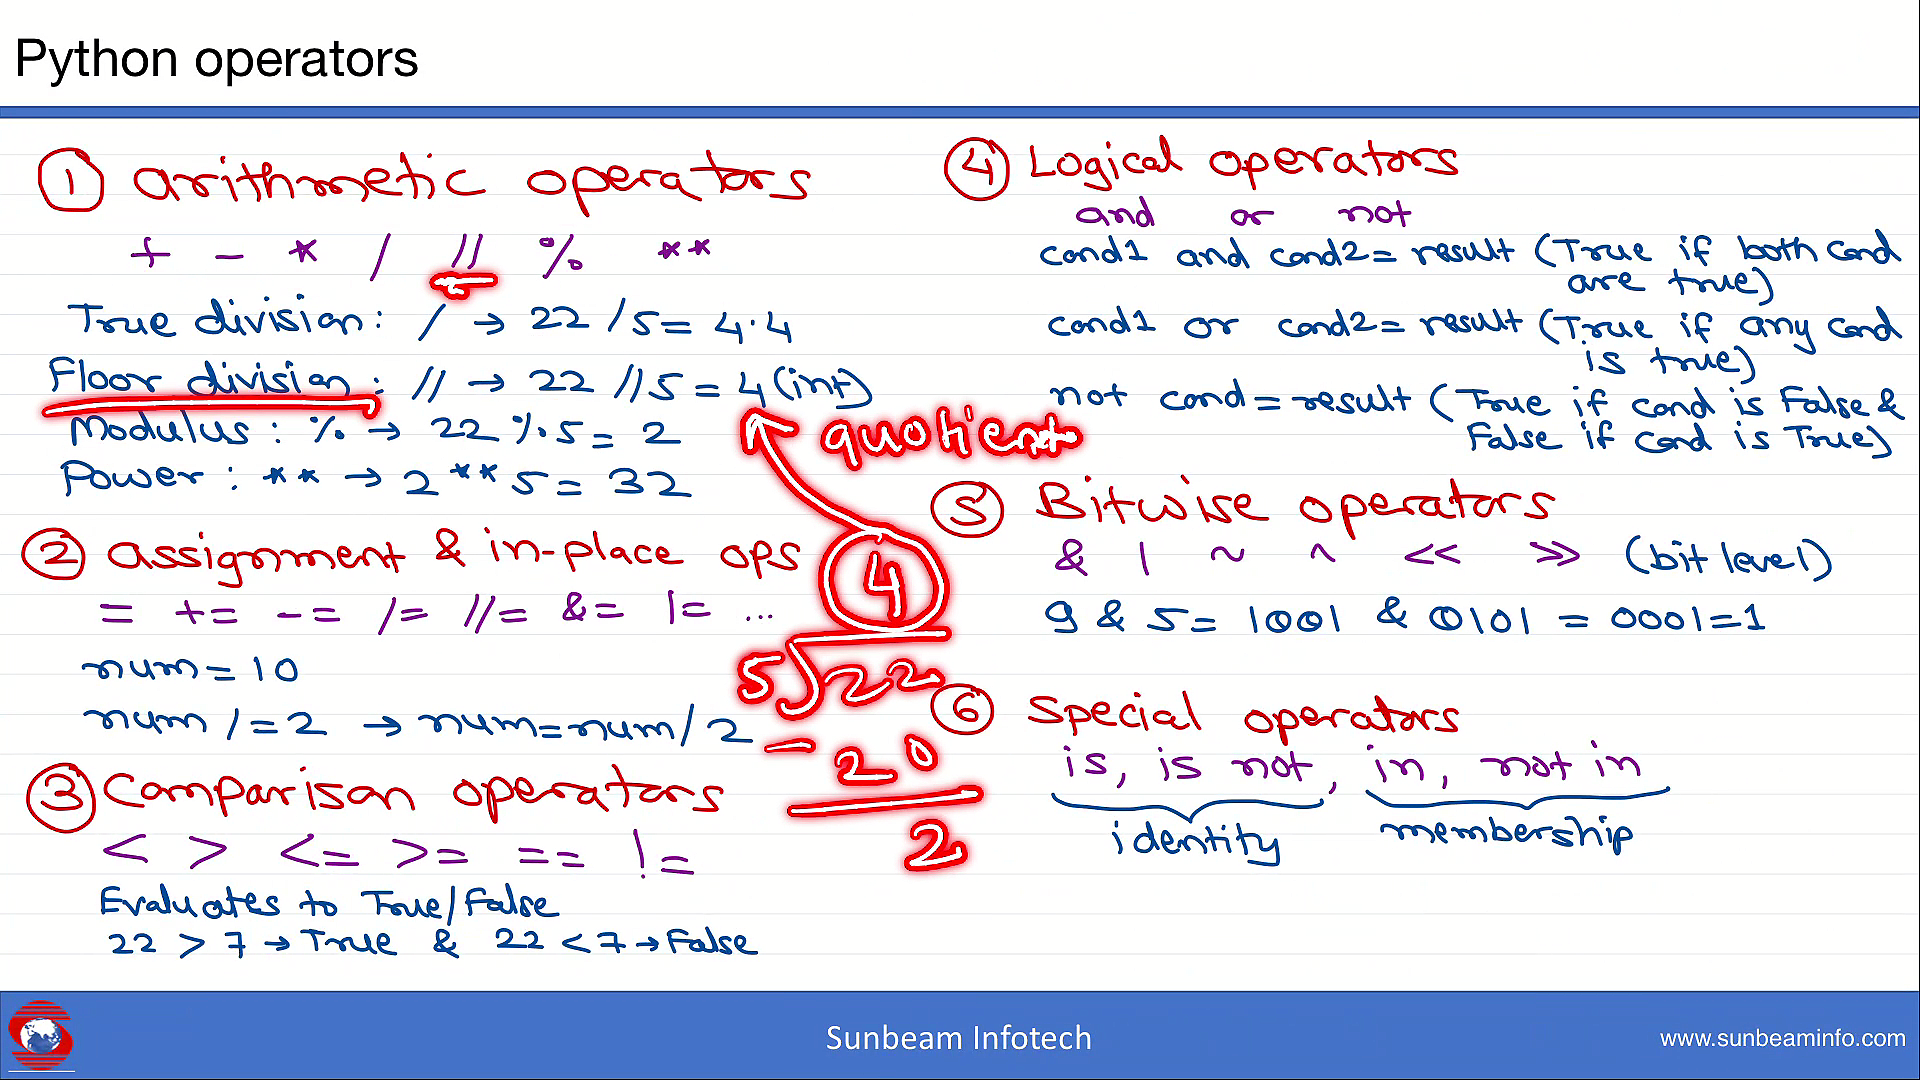 Python operators
① arithmetic operators
+ - * / // % **
True division: / → 22 / 5 = 4.4
Floor division: // → 22 // 5 = 4 (int)
Modulus: % → 22 % 5 = 2
Power: ** → 2 ** 5 = 32
quotient
② assignment & in-place ops
= += -= /= //= &= |= ...
num = 10
num /= 2 → num = num / 2
4
5)22
- 20
2
③ Comparison operators
< > <= >= == !=
Evaluates to True/False
22 > 7 → True & 22 < 7 → False
④ Logical operators
and or not
cond1 and cond2 = result (True if both cond
are true)
cond1 or cond2 = result (True if any cond
is true)
not cond = result (True if cond is False &
False if cond is True)
⑤ Bitwise operators
& | ~ ^ << >> (bit level)
9 & 5 = 1001 & 0101 = 0001 = 1
⑥ Special operators
is, is not, in, not in
identity membership
Sunbeam Infotech
www.sunbeaminfo.com